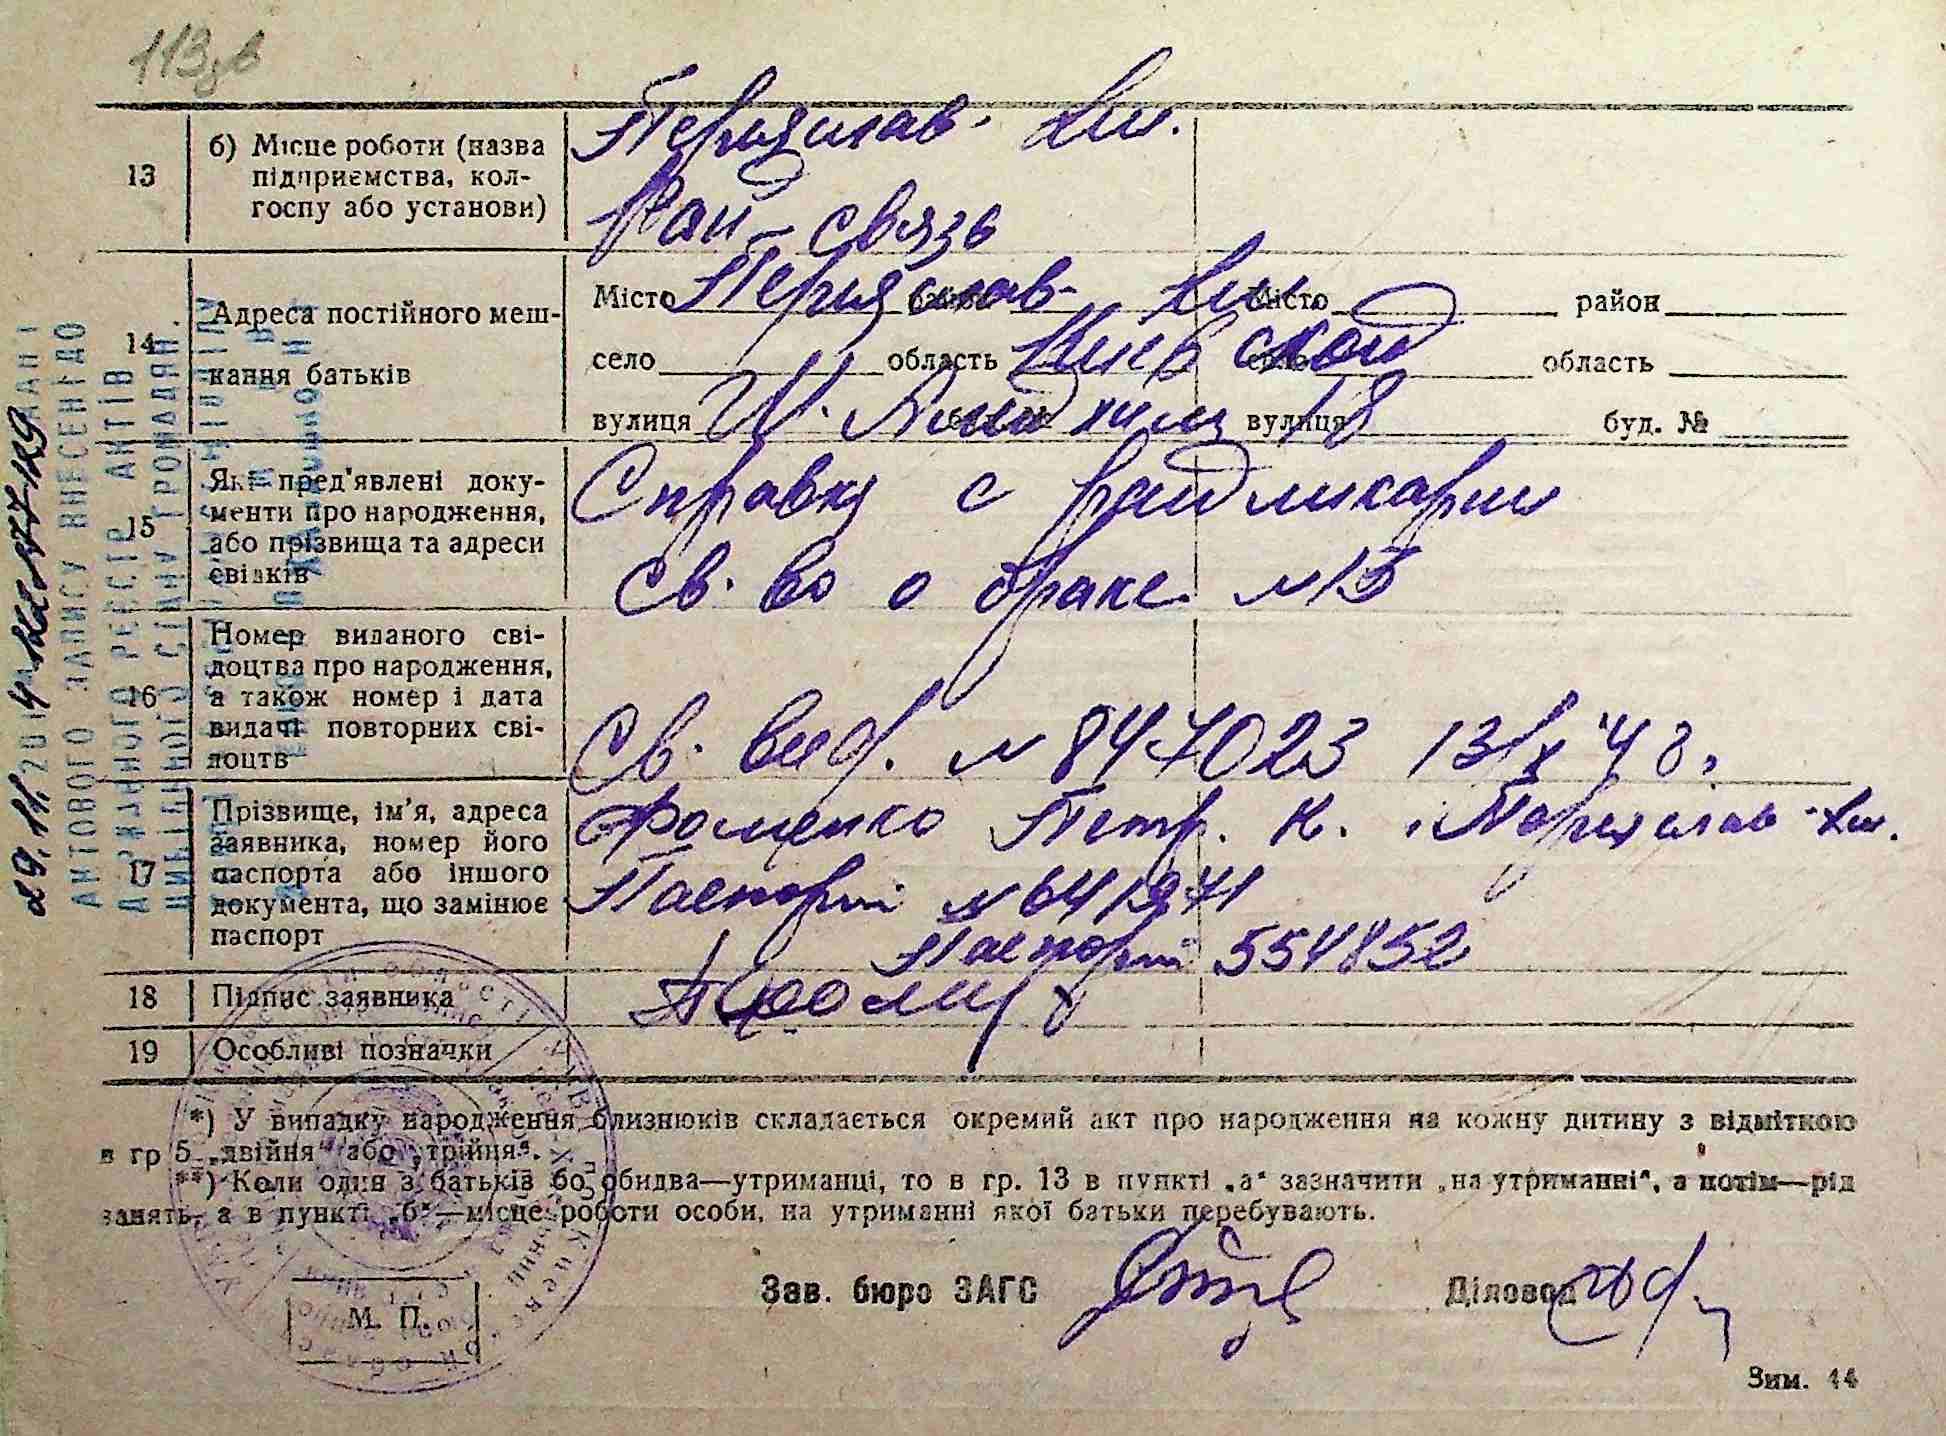 113зв
13
б) Місце роботи (назва підприємства, колгоспу або установи)
Переяслав-Хм.
Рай-связь
14
Адреса постійного мешкання батьків
Місто Переяслав-Хм. район Місто район
село область Киевской село область
вулиця буд. № 18 вулиця буд. №
15
Які пред'явлені документи про народження, або прізвища та адреси свідків
Справка с райликарни
Св. во о браке № 13
16
Номер виданого свідоцтва про народження, а також номер і дата видачі повторних свідоцтв
Св. выд. № 847023 13/X 48
17
Прізвище, ім'я, адреса заявника, номер його паспорта або іншого документа, що замінює паспорт
Фоменко Петр. К. Переяслав-Хм.
Паспорт № 641971
Паспорт 554852
18
Підпис заявника
19
Особливі позначки
*) У випадку народження близнюків складається окремий акт про народження на кожну дитину з відміткою
в гр 5 „двійня“ або „трійня“.
**) Коли один з батьків бо обидва—утриманці, то в гр. 13 в пункті „а“ зазначити „на утриманні“, а потім—рід
занять, а в пункті „б“—місце роботи особи, на утриманні якої батьки перебувають.
Зав. бюро ЗАГС
Діловод
М. П.
Зим. 44
29.11.20
АКТОВОГО ЗАПИСУ ВНЕСЕНІ ДО
ДЕРЖАВНОГО РЕЄСТР АКТІВ
ЦИВІЛЬНОГО СТАНУ ГРОМАДЯН